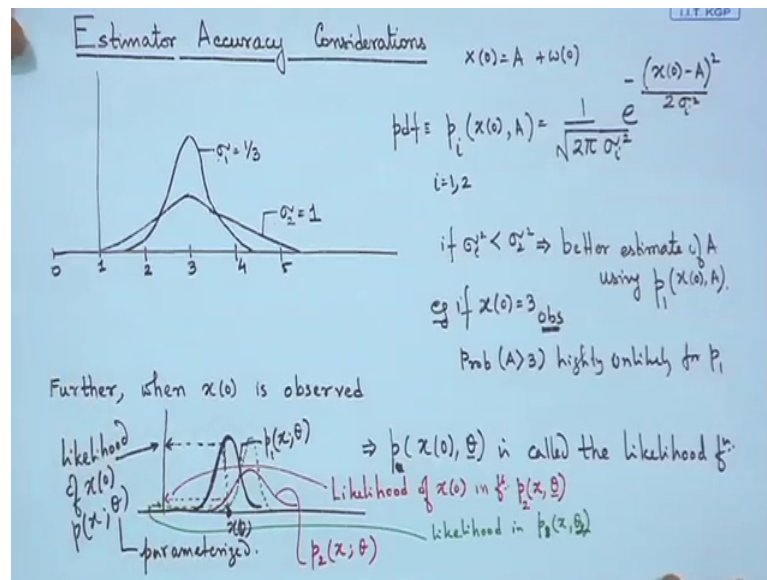 I.I.T. KGP
Estimator Accuracy Considerations
x(0) = A + w(0)
pdf ≡ p_i (x(0), A) = 1/√(2π σ_i²) e^{-(x(0)-A)²/(2σ_i²)}
i=1,2
σ₁ = 1/3
σ₂ = 1
0 1 2 3 4 5
if σ₁² < σ₂² ⇒ better estimate of A
using p₁(x(0), A).
eg if x(0) = 3 obs
Prob (A>3) highly unlikely for p₁
Further, when x(0) is observed
likelihood
of x(0)
p(x; θ)
parameterized.
p₁(x; θ)
x(0)
p₂(x; θ)
⇒ p(x(0), θ) is called the Likelihood fⁿ.
Likelihood of x(0) in fⁿ p₂(x, θ)
likelihood in